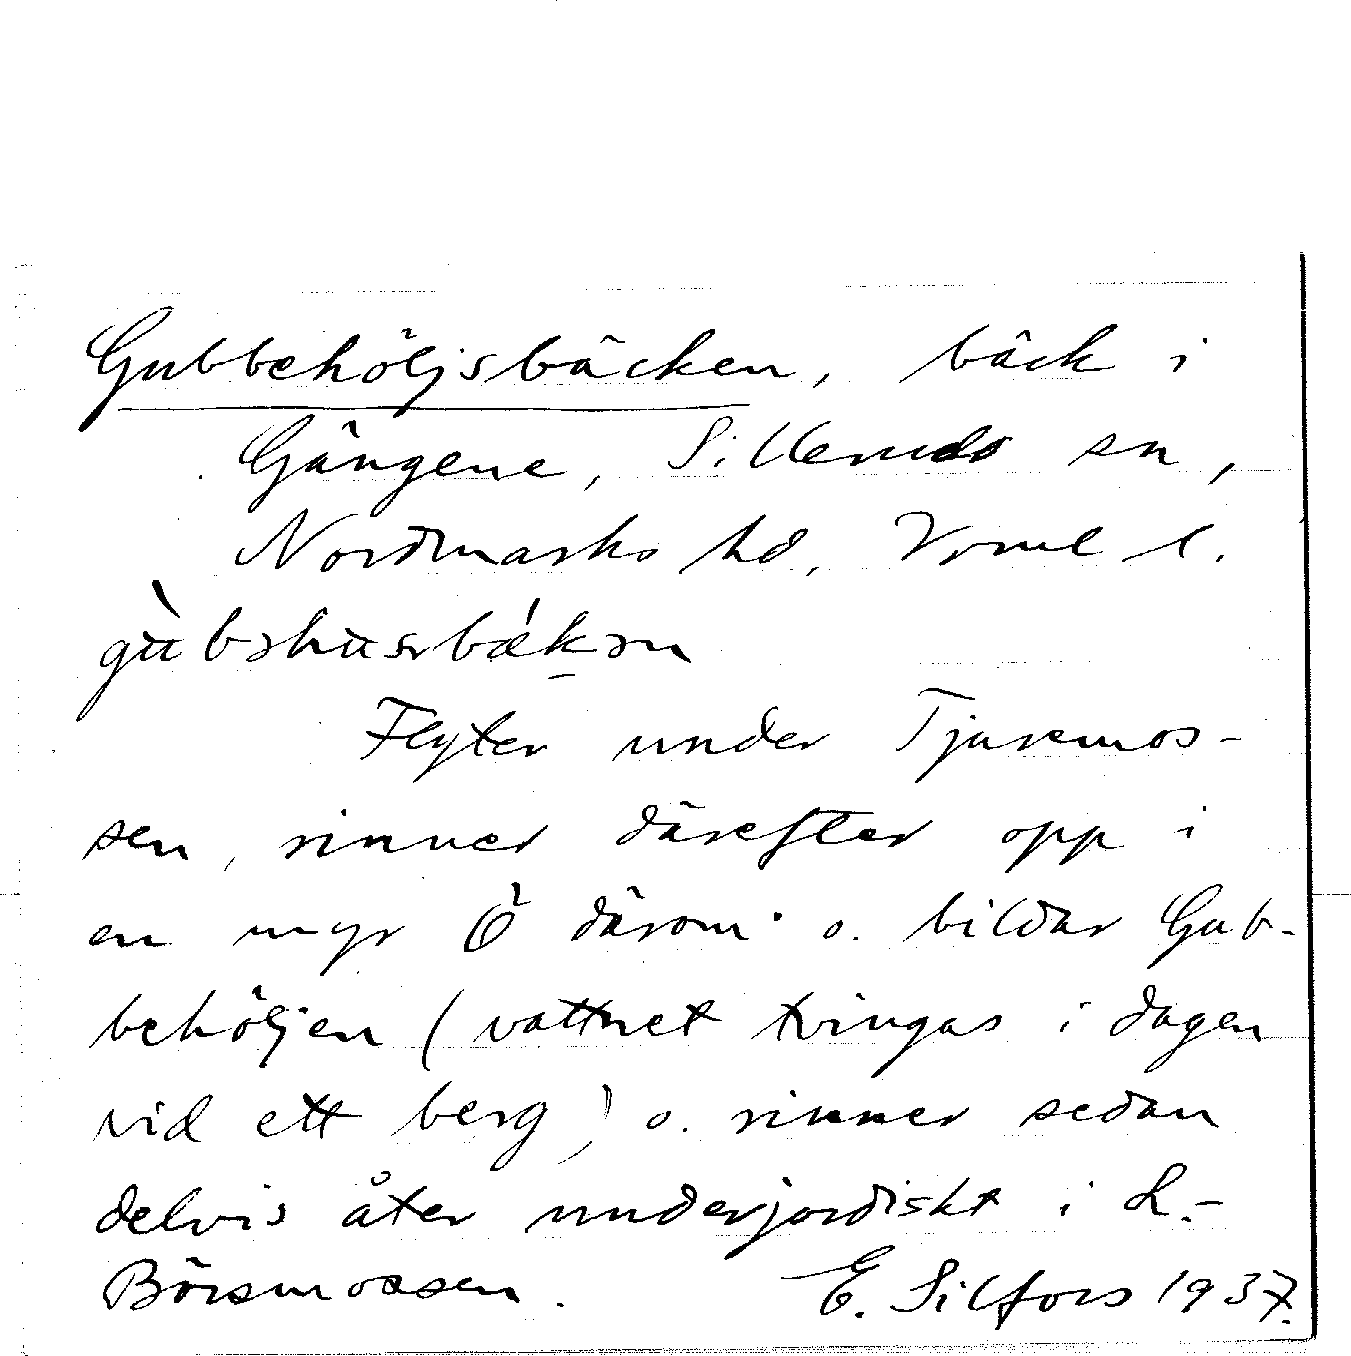 Gubbehöljsbäcken, bäck i
Gängene, Sillerud sn,
Nordmarks hd, Värml l.
Flyter under Tjuremos-
sen, rinner därefter opp i
en myr Ö därom o. bildar Gub-
behöljen (vattnet tvingas i dagen
vid ett berg) o. rinner sedan
delvis åter underjordiskt i L.-
Börsmossen. E. Silfors 1937.